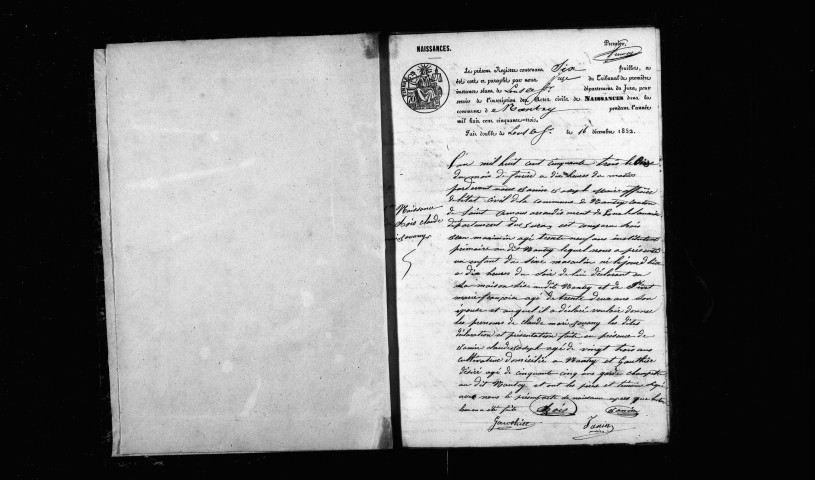 NAISSANCES.
Premier
Le présent Registre contenant Six feuillets, a
été coté et paraphé par nous juge du Tribunal de première
instance séant de Lons le S. département du Jura, pour
servir à l'inscription des Actes civils de NAISSANCES dans la
commune de Nantey pendant l'année
mil huit cent cinquante-trois.
Fait double à Lons le S. le 16 décembre 1852.
Naissance
claude
L'an mil huit cent cinquante trois le onze
du mois de février a dix heures du matin
par devant nous Janin Joseph officier
de l'état civil de la commune de Nantey canton
de Saint Amour arrondissement de Lons le Saunier
département du Jura est comparu
agé trente neuf ans instituteur
primaire audit Nantey lequel nous a présenté
un enfant du sexe masculin né
a dix heures du soir de lui déclarant
la maison audit Nantey et de
marie françoise agé de trente deux ans son
épouse et auquel il a déclaré vouloir donner
les prenoms de claude marie les dites
déclaration et présentation faite en présence de
Janin claude Joseph agé de vingt trois ans
cultivateur domicilié a Nantey et Gauthier
Désiré agé de cinquante cinq ans garde champêtre
au dit Nantey et ont les père et témoins signé
avec nous le présent acte de naissance après que
a été fait
Janin
Gauthier
Janin